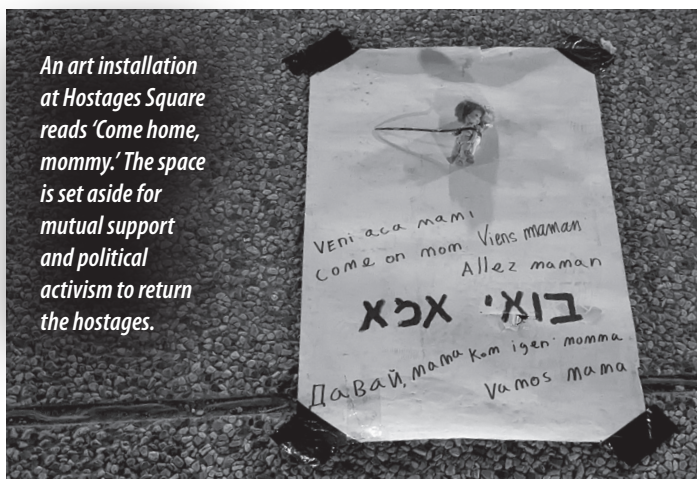 An art installation
at Hostages Square
reads ‘Come home,
mommy.’ The space
is set aside for
mutual support
and political
activism to return
the hostages.
veni aca mami
come on mom Viens maman
Allez maman
בואי אמא
Давай, мама kom igen momma
Vamos mama